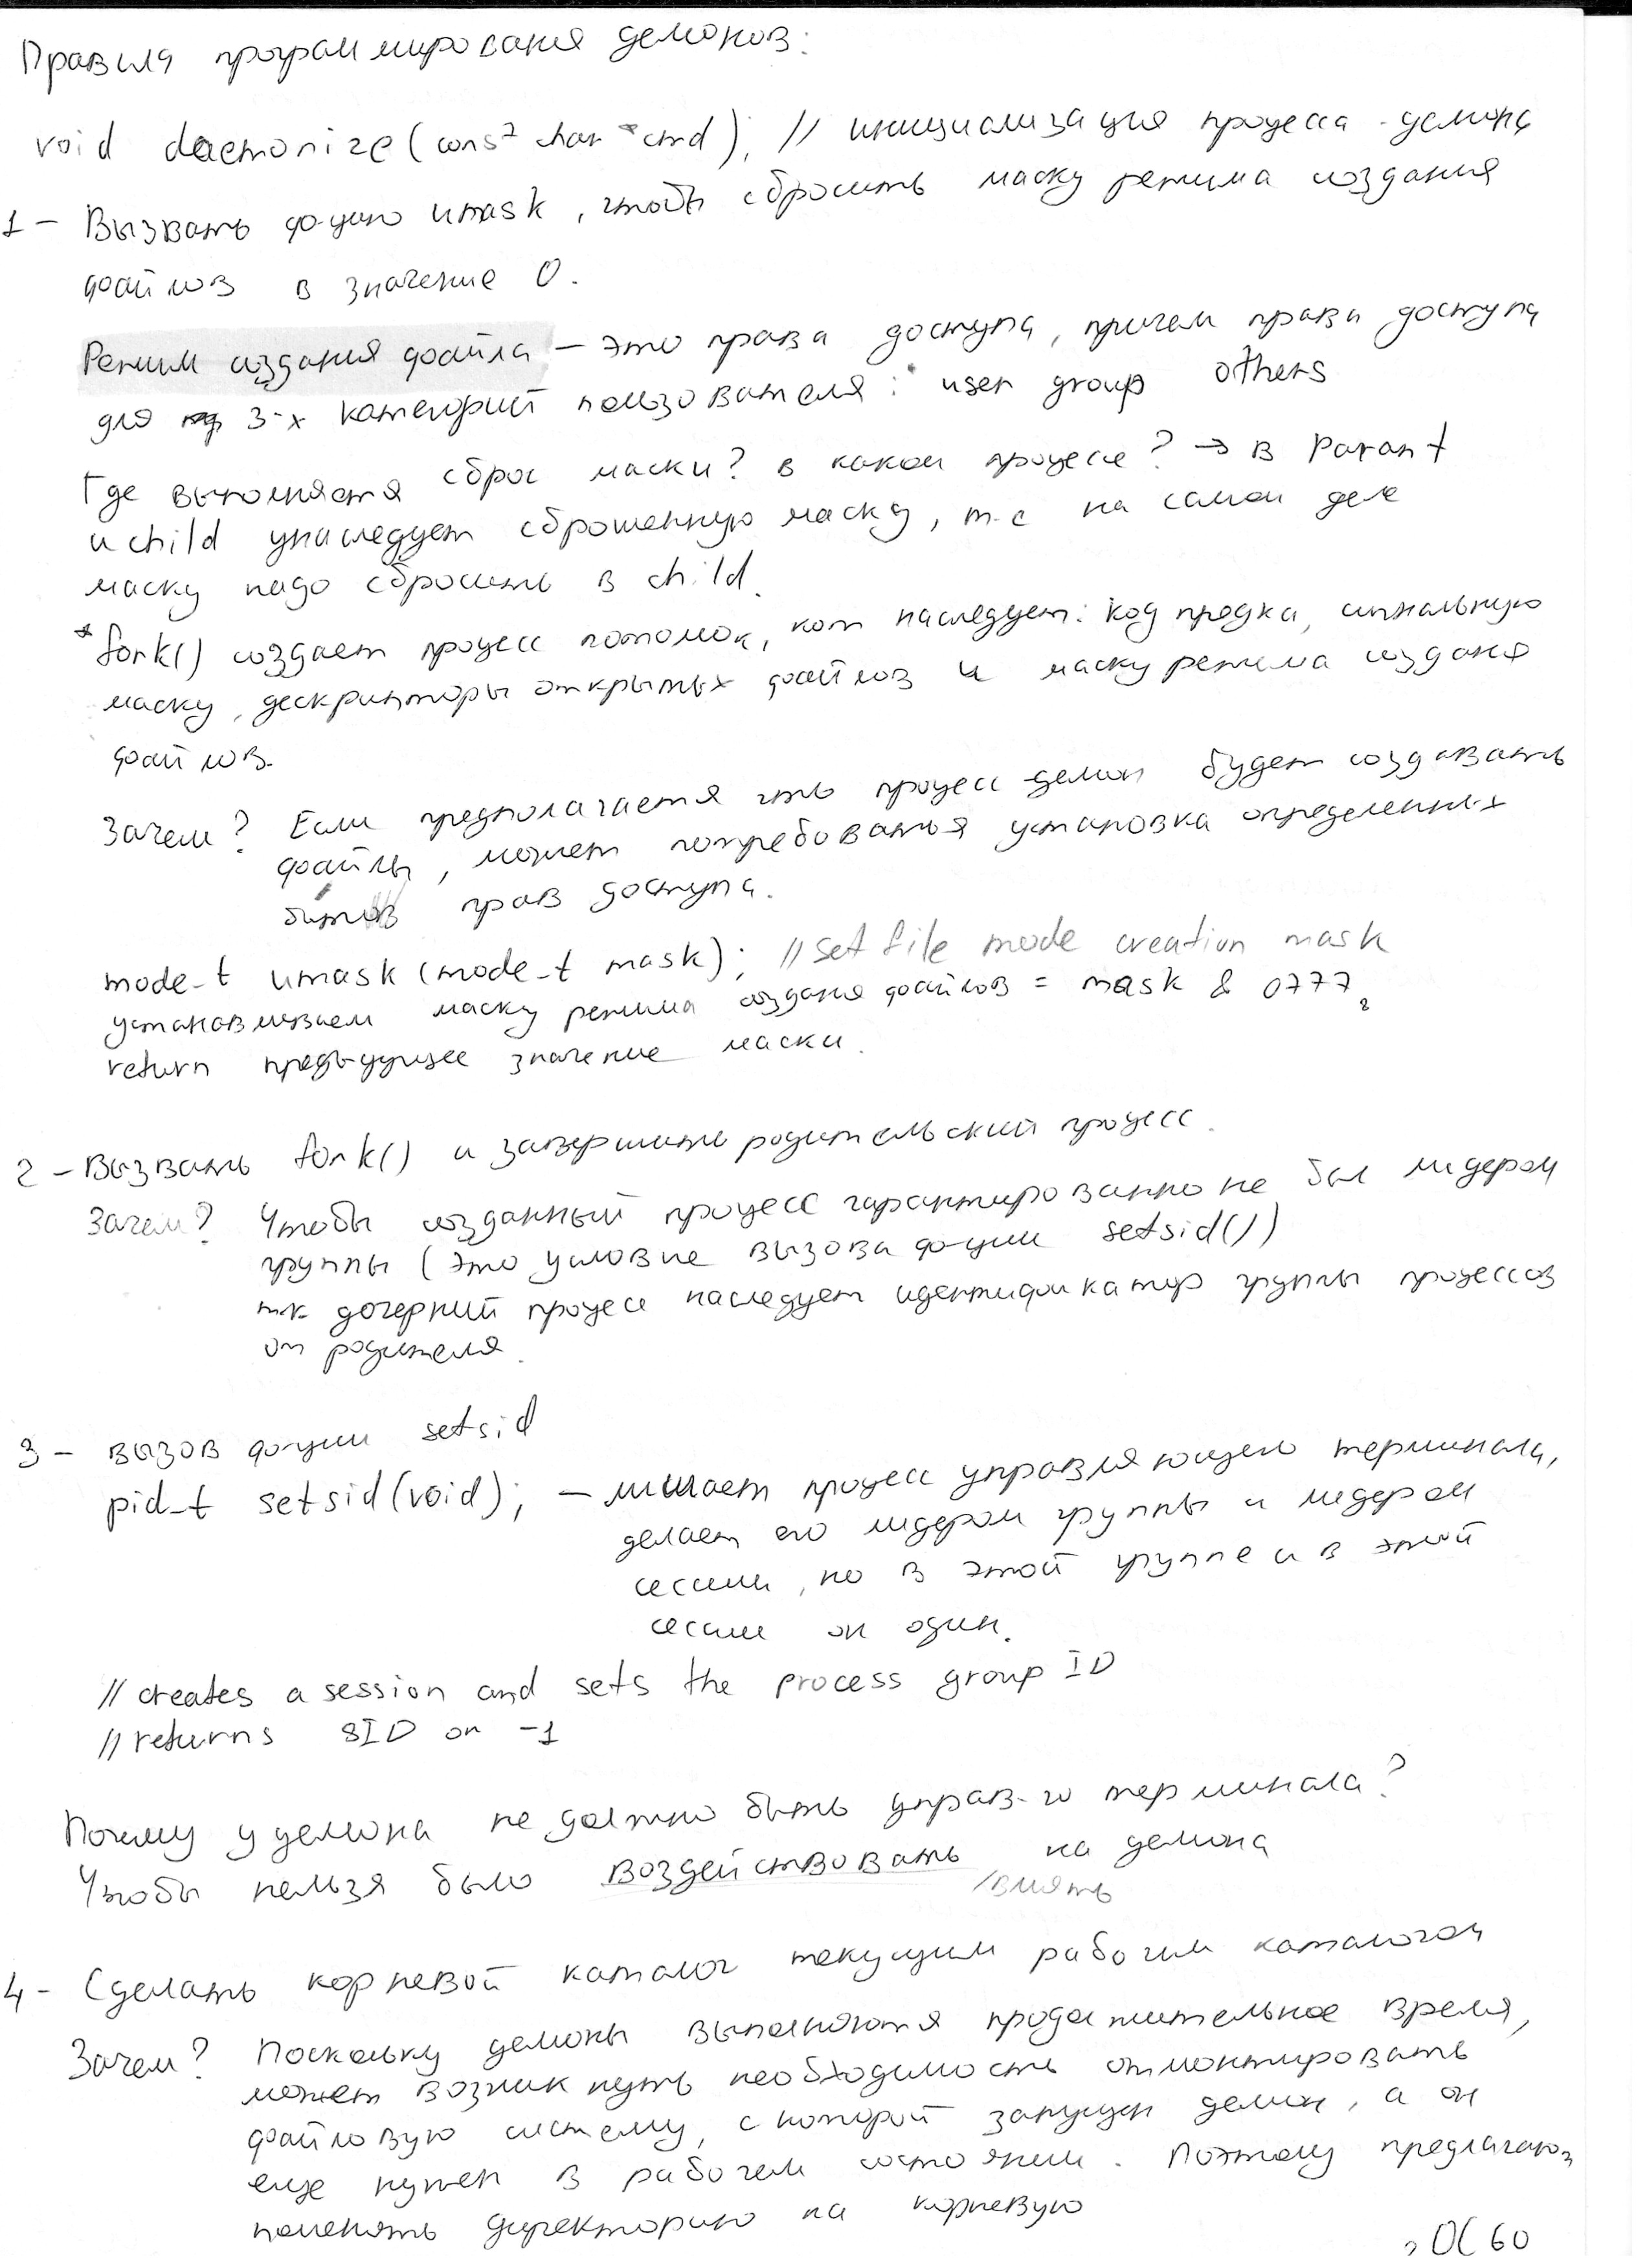 Правила программирования демонов:
void daemonize(const char *cmd); // инициализация процесса-демона
1 – Вызвать ф-цию umask, чтобы сбросить маску режима создания
файлов в значение 0.
Режим создания файла – это права доступа, причем права доступа
для 3-х категорий пользователя: user group others
Где выполняется сброс маски? в каком процессе? → в Parant
и child унаследует сброшенную маску, т.е на самом деле
маску надо сбросить в child.
* fork() создает процесс потомок, кот наследует: код предка, сигнальную
маску, дескрипторы открытых файлов и маску режима создания
файлов.
Зачем? Если предполагается что процесс демон будет создавать
файлы, может потребоваться установка определенных
битов прав доступа.
mode_t umask(mode_t mask); // set file mode creation mask
устанавливаем маску режима создания файлов = mask & 0777
return предыдущее значение маски.
2 – Вызвать fork() и завершить родительский процесс.
Зачем? Чтобы созданный процесс гарантированно не был лидером
группы (это условие вызова ф-ции setsid())
т.к дочерний процесс наследует идентификатор группы процессов
от родителя.
3 – вызов ф-ции setsid
pid_t setsid(void); – лишает процесс управляющего терминала,
делает его лидером группы и лидером
сессии, но в этой группе и в этой
сессии он один.
// creates a session and sets the process group ID
// returns SID or -1
Почему у демона не должно быть управ-го терминала?
Чтобы нельзя было воздействовать на демона
/влиять
4 – Сделать корневой каталог текущим рабочим каталогом
Зачем? Поскольку демоны выполняются продолжительное время,
может возникнуть необходимость отмонтировать
файловую систему, с которой запущен демон, а он
еще нужен в рабочем состоянии. Поэтому предлагают
поменять директорию на корневую
ОС 60